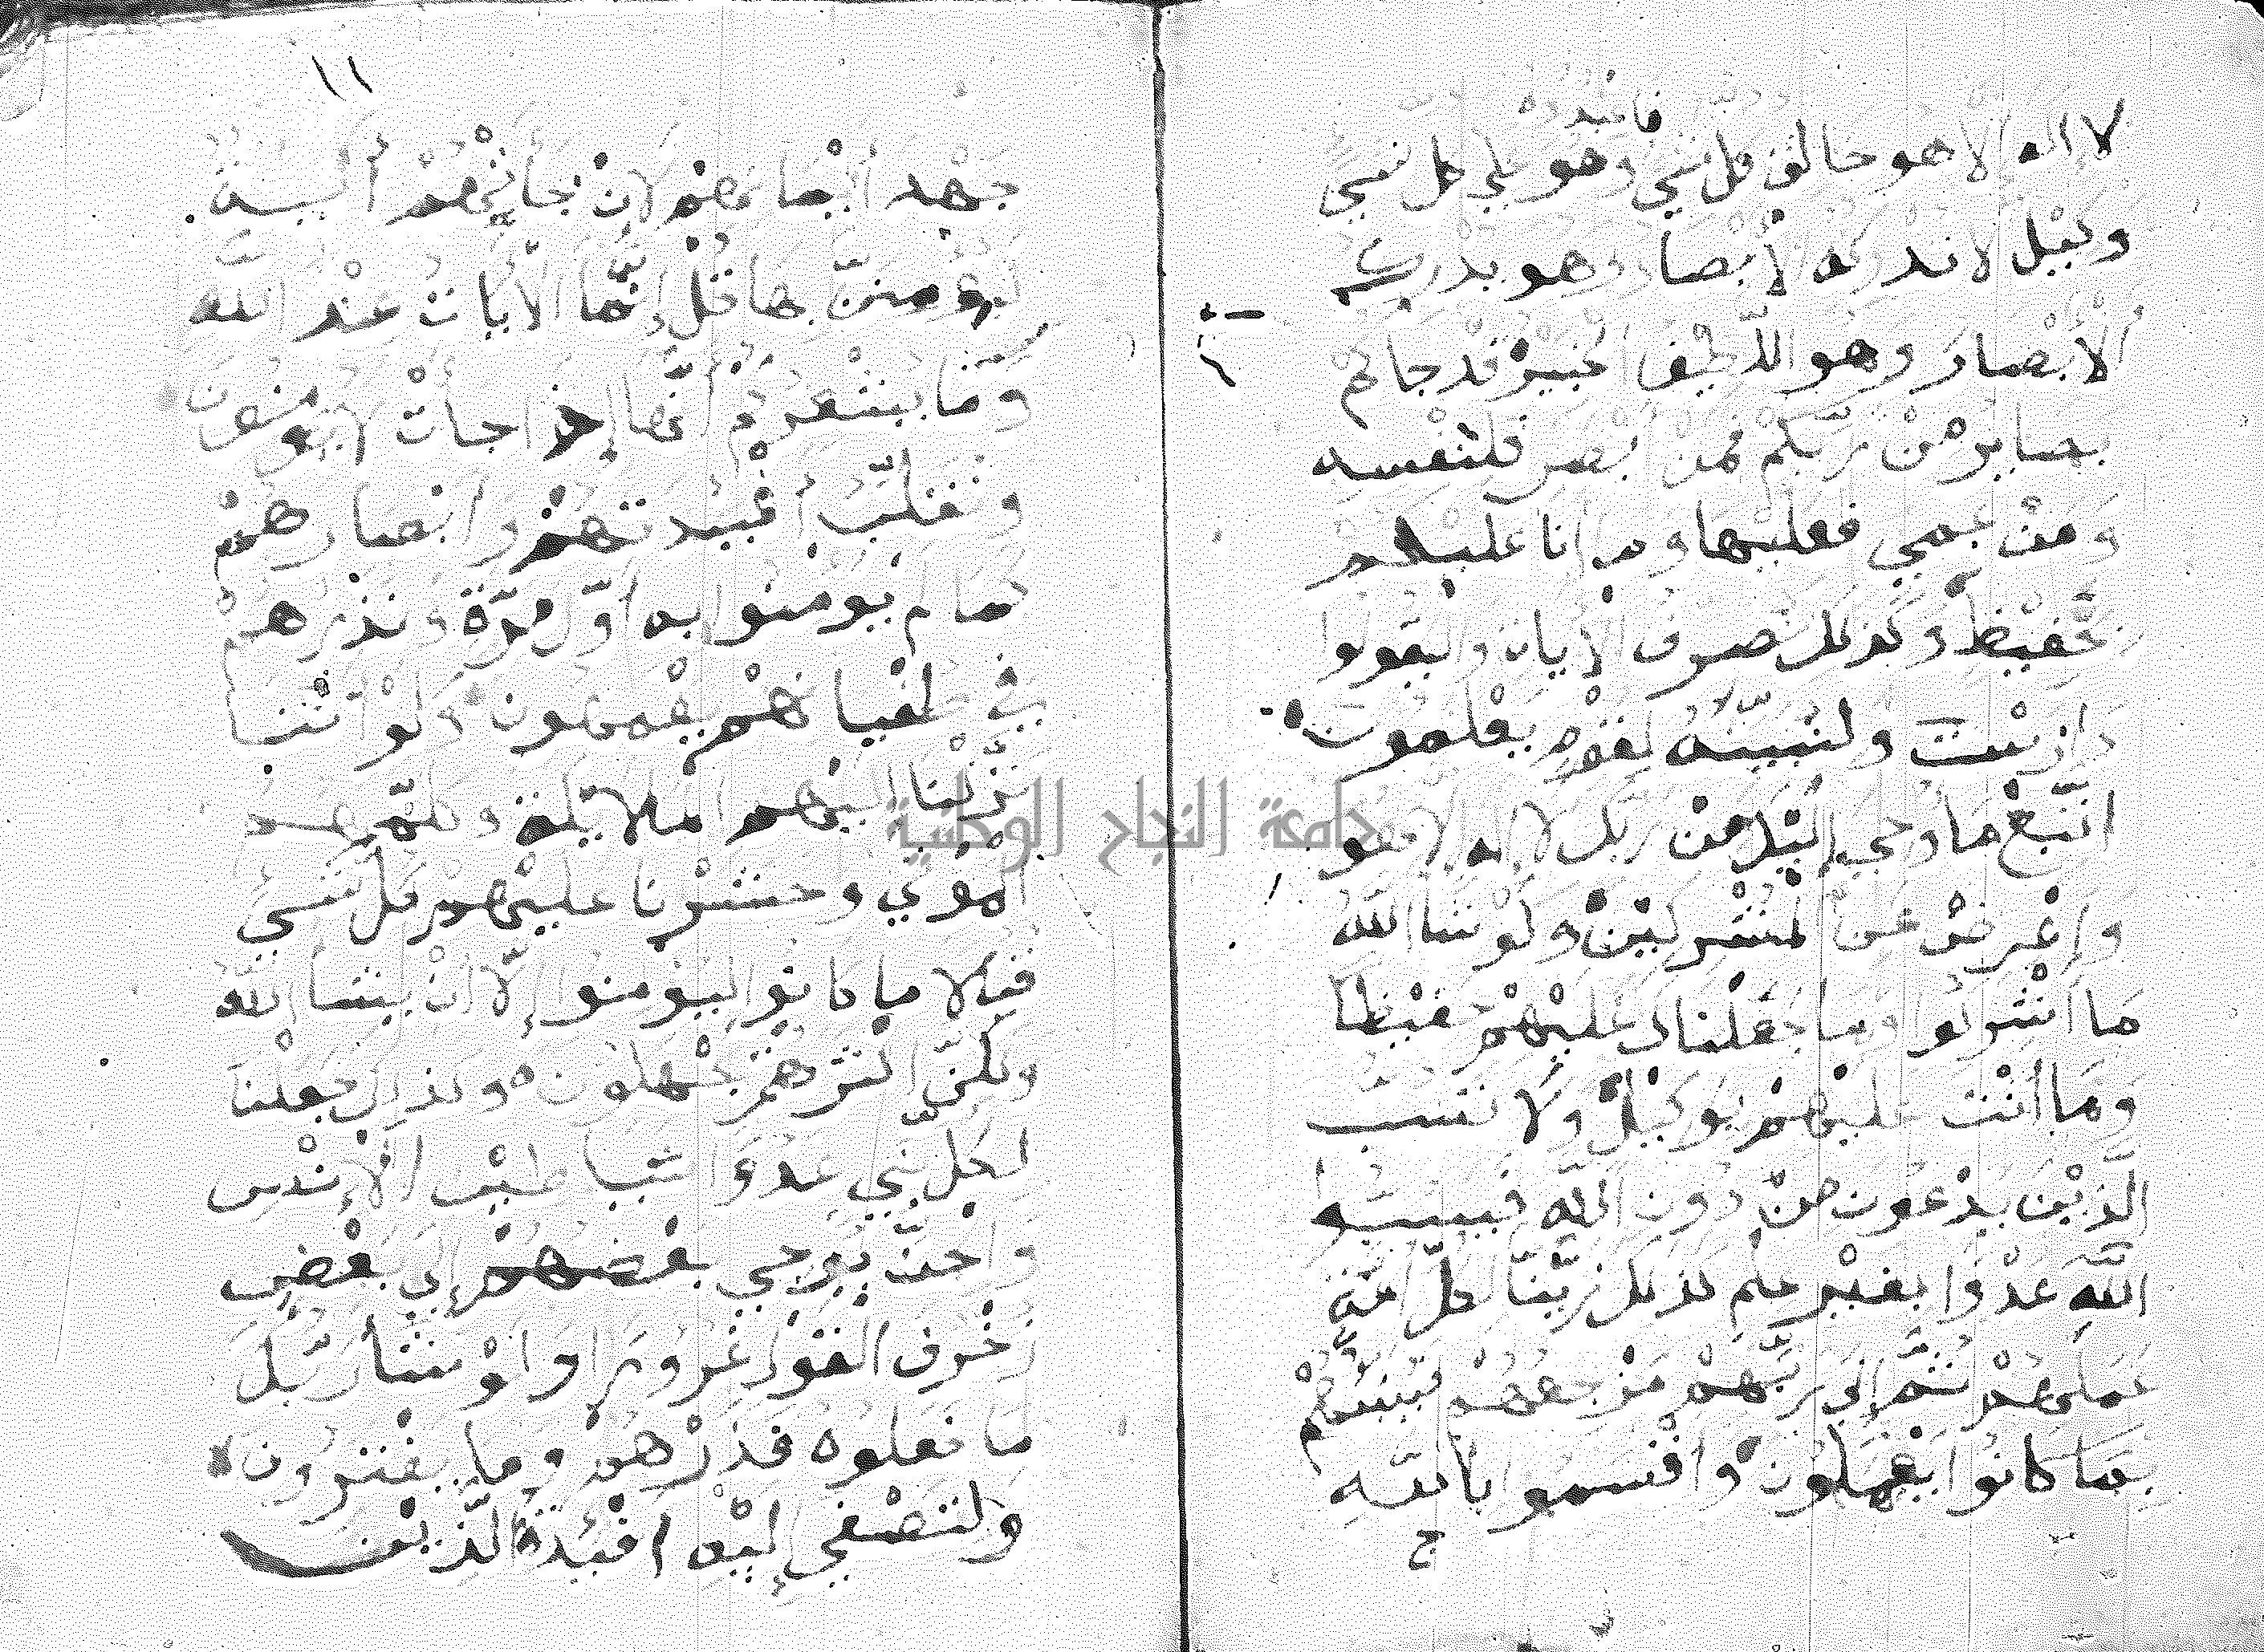 فاعبدوه
لا اله الا هو خالق كل شي وهو علي كل شي
وكيل لا تدركه الابصار وهو يدرك
الأبصار وهو اللطيف الخبير قد جاكم
بصاير من ربكم فمن بصر فلنفسه
ومن عمي فعليها وما انا عليكم
بحفيظ وكذلك نصرف الايات وليقولوا
دارست ولنبينه لقوم يعلمون
اتبع ما أوحي إليك من ربك لا إله الا هو
وإعرض عن المشركين ولو شا الله
ما اشركوا وما جعلناك عليهم حفيظا
وما أنت عليهم بوكيل ولا تسب
الذين يدعون من دون الله فيسبوا
الله عدوا بغير علم كذلك زينا لكل امة
عملهم ثم إلي ربهم مرجعهم فينبئهم
بما كانوا يعملون واقسموا بالله
ج
١١
جهد أيمانهم لان جأتهم أية
ليؤمنن بها قل إنما الأيات عند الله
وما يشعركم أنها إذا جأت لا يؤمنون
ونقلب أفئيدتهم وابصارهم
كما لم يومنوا به اول مرة ونذرهم
في طغيانهم يعمهون ولو اننا
نزلنا اليهم الملائكة وكلمهم
الموتي وحشرنا عليهم كل شي
قبلا ما كانوا ليومنوا إلا أن يشا الله
ولكن اكثرهم يجهلون وكذلك جعلنا
لكل نبي عدوا شياطين الإنس
والجن يوحي بعضهم إلي بعض
زخرف القول غرورا ولو شأ ربك
ما فعلوه فذرهم وما يفترون
ولتصغي إليه افئدة الذين
جامعة النجاح الوطنية